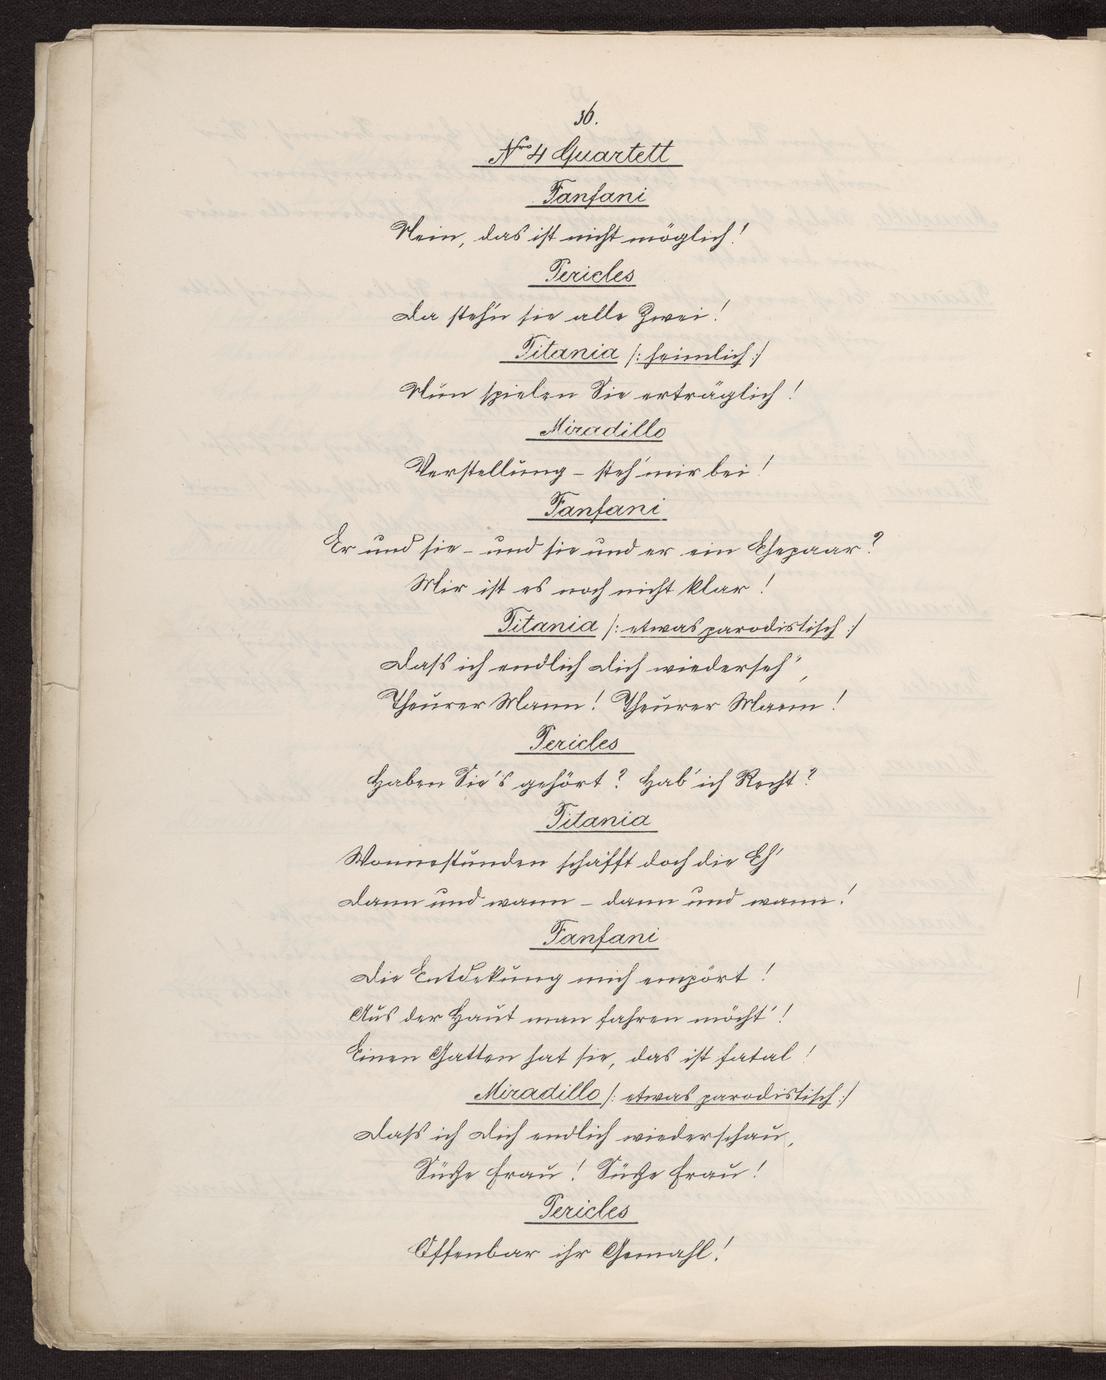 36.
Nro 4 Quartett
Fanfani
Nein, das ist nicht möglich!
Pericles
Da steh'n sie alle Zwei!
Titania /: heimlich :/
Nun spielen Sie erträglich!
Miradillo
Verstellung – steh' mir bei!
Fanfani
Er und sie – und sie und er ein Ehepaar?
Mir ist es noch nicht klar!
Titania /: etwas parodistisch :/
Dass ich endlich Dich wiederseh',
Theurer Mann! Theurer Mann!
Pericles
Haben Sie's gehört? Hab' ich Recht?
Titania
Wonnestunden schafft doch die Eh'
Dann und wann – dann und wann!
Fanfani
Die Entdekung mich empört!
Aus der Haut man fahren möcht'!
Einen Gatten hat sie, das ist fatal!
Miradillo /: etwas parodistisch :/
Dass ich Dich endlich wiederschau,
Süße Frau! Süße Frau!
Pericles
Offenbar ihr Gemahl!